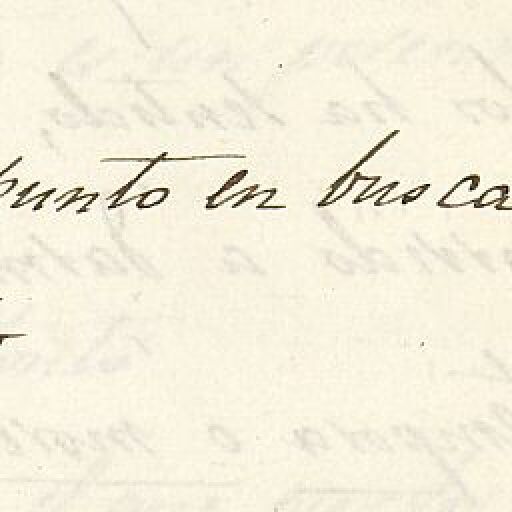 punto en busca